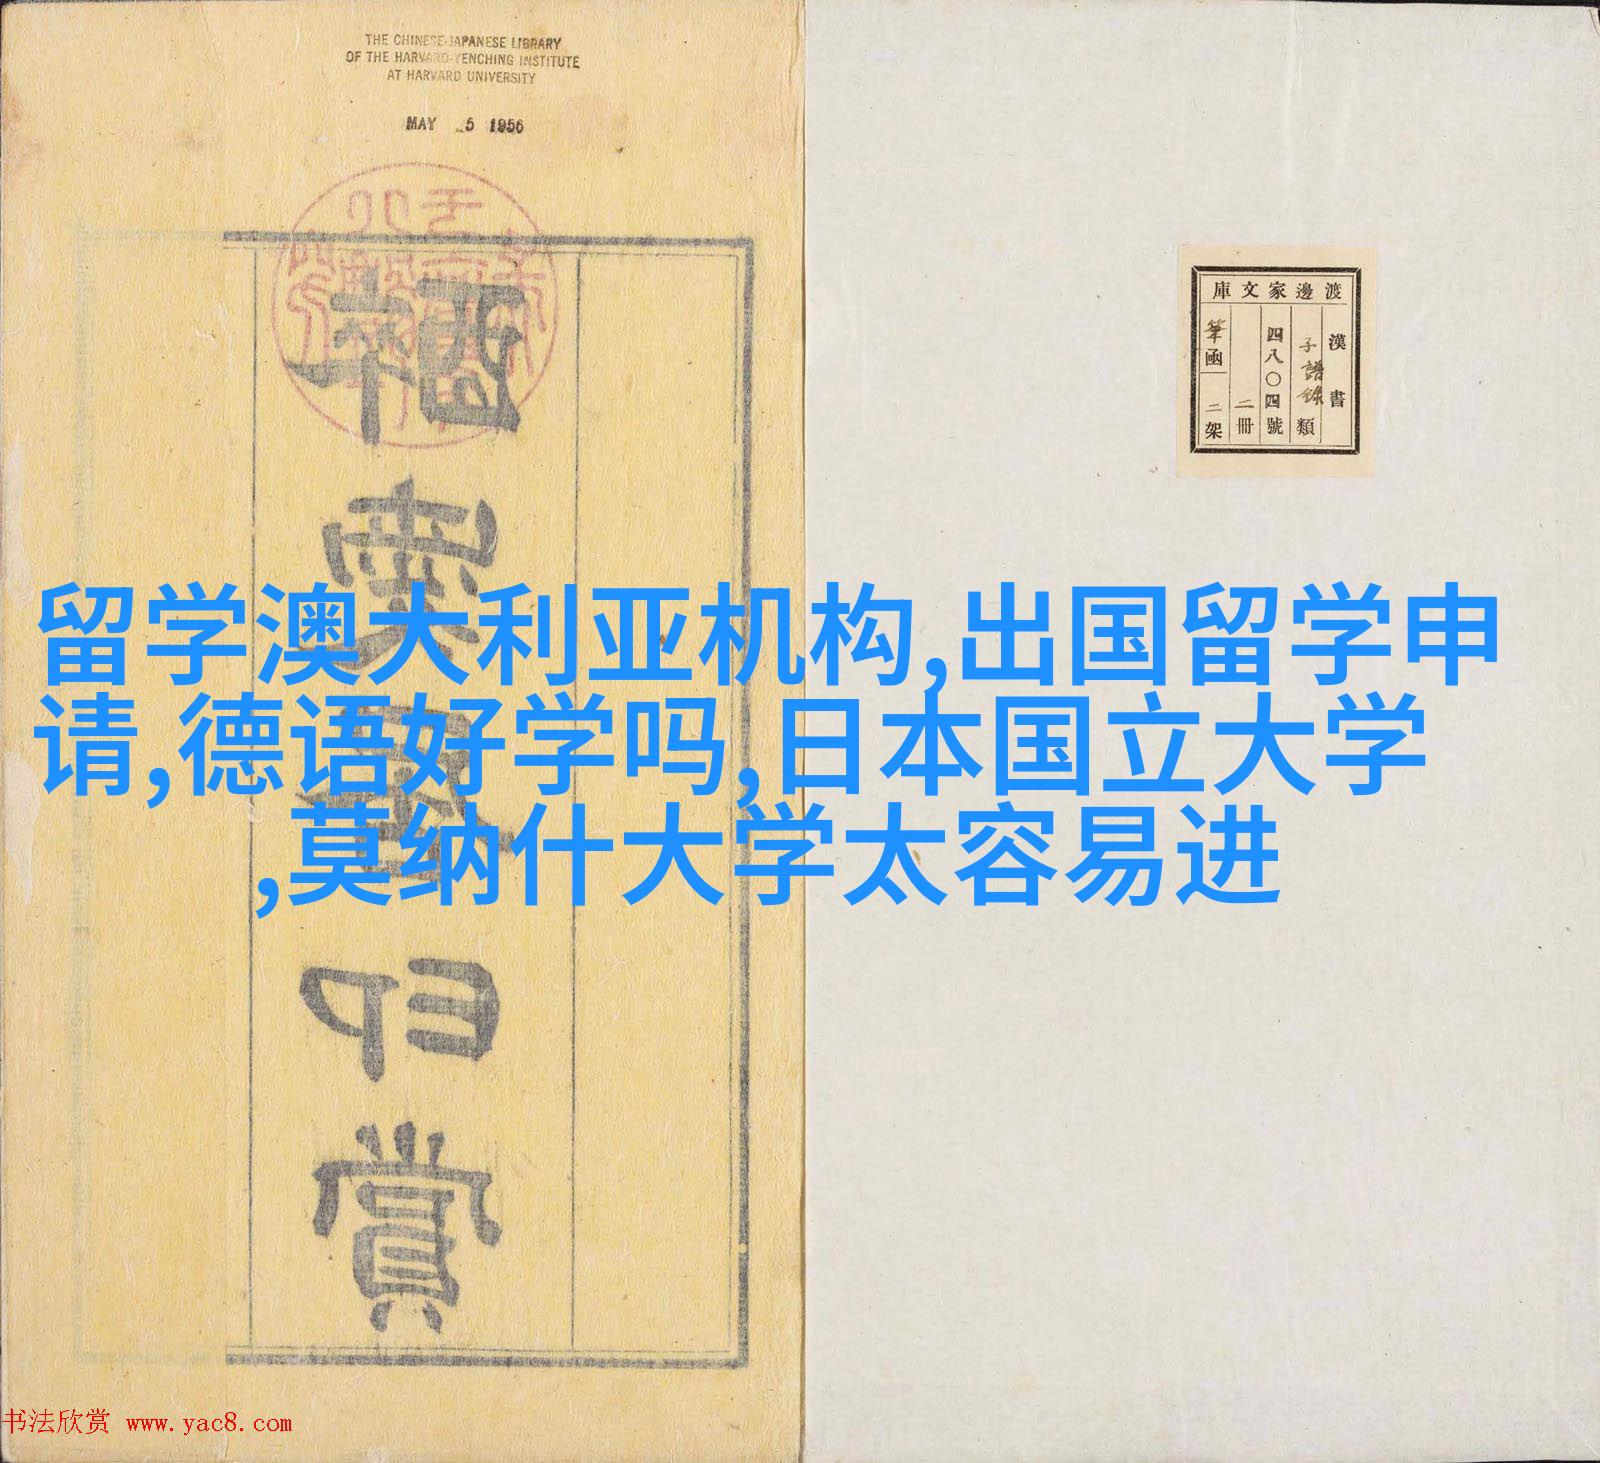 THE CHINESE-JAPANESE LIBRARY
OF THE HARVARD-YENCHING INSTITUTE
AT HARVARD UNIVERSITY
MAY 5 1956
渡邊家文庫
漢書
子譜錄類
四八〇四號
二冊
筆函二架
印賞
留学澳大利亚机构,出国留学申
请,德语好学吗,日本国立大学
,莫纳什大学太容易进
书法欣赏 www.yac8.com